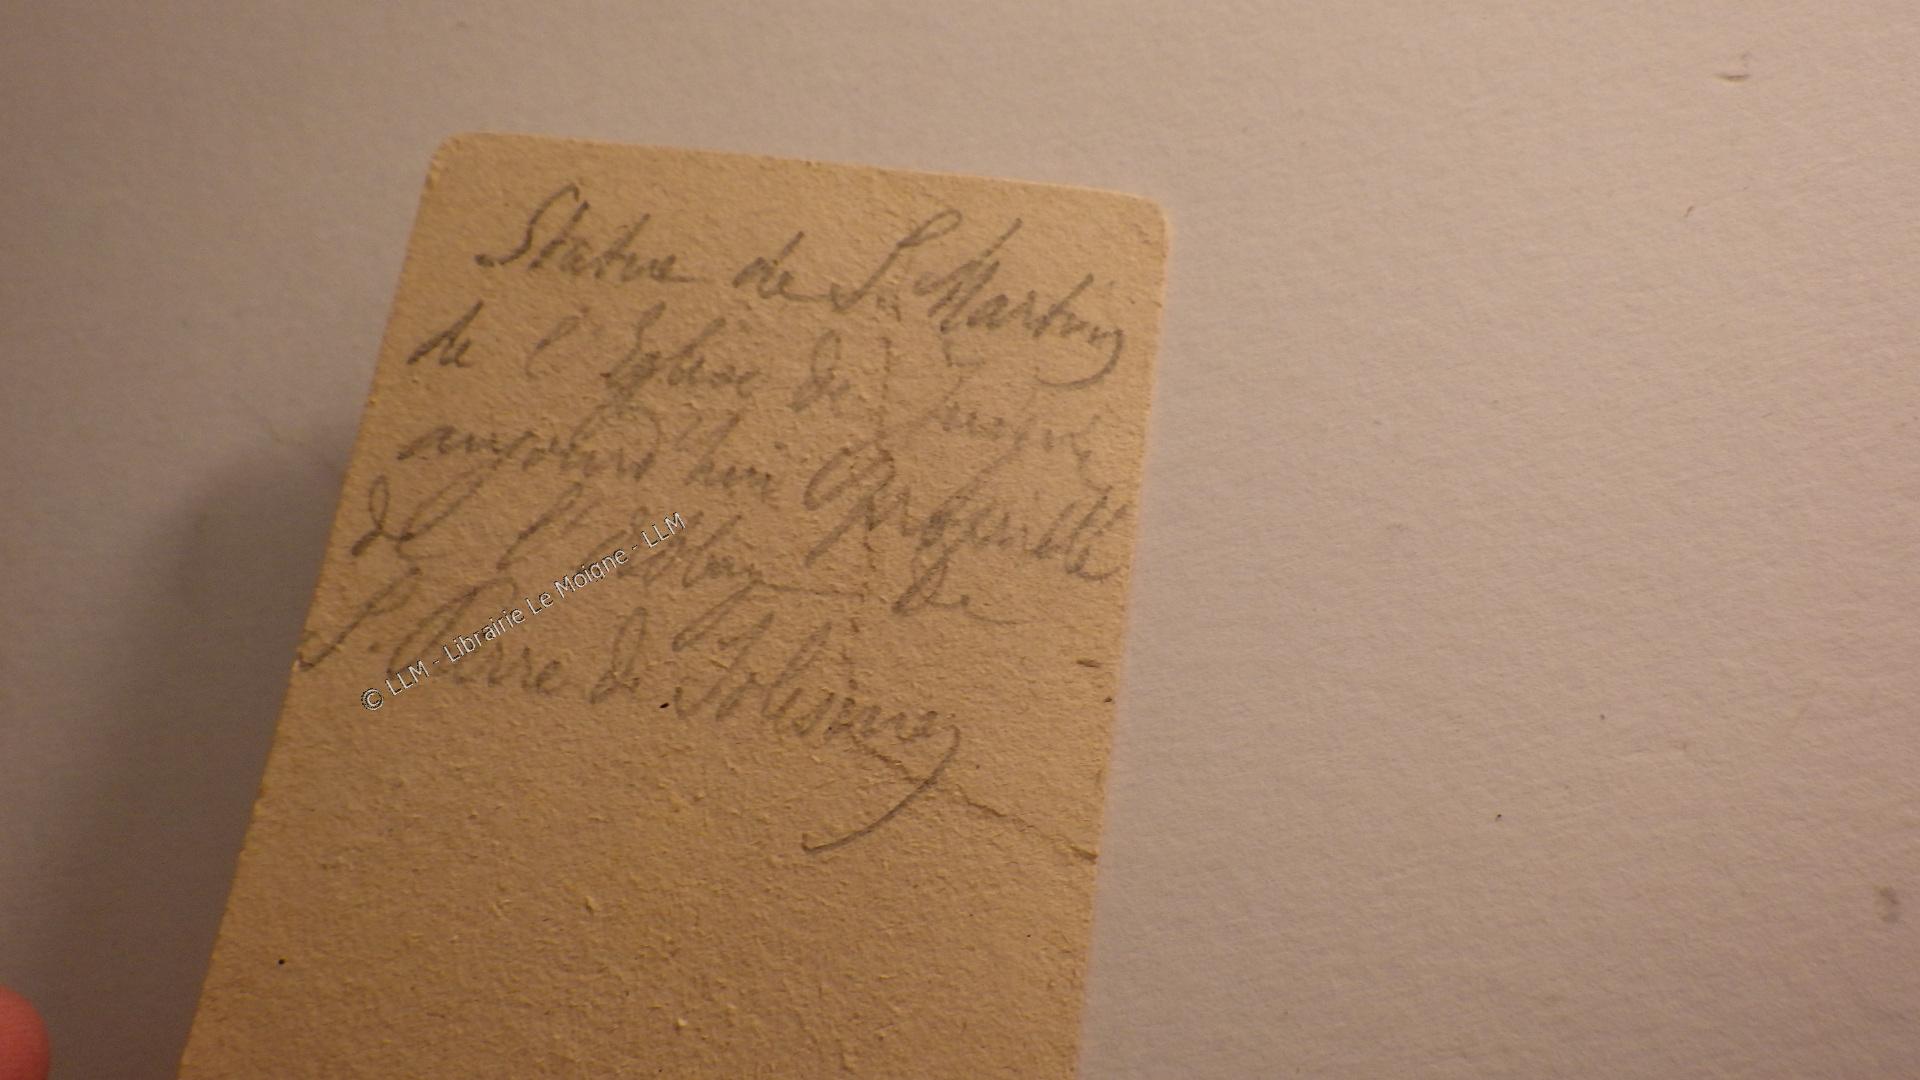 Statue de S. Martin
de l'Eglise de
aujourd'hui Propriété
de l'Abbaye de
S. Pierre de Solesmes
© LLM - Librairie Le Moigne - LLM